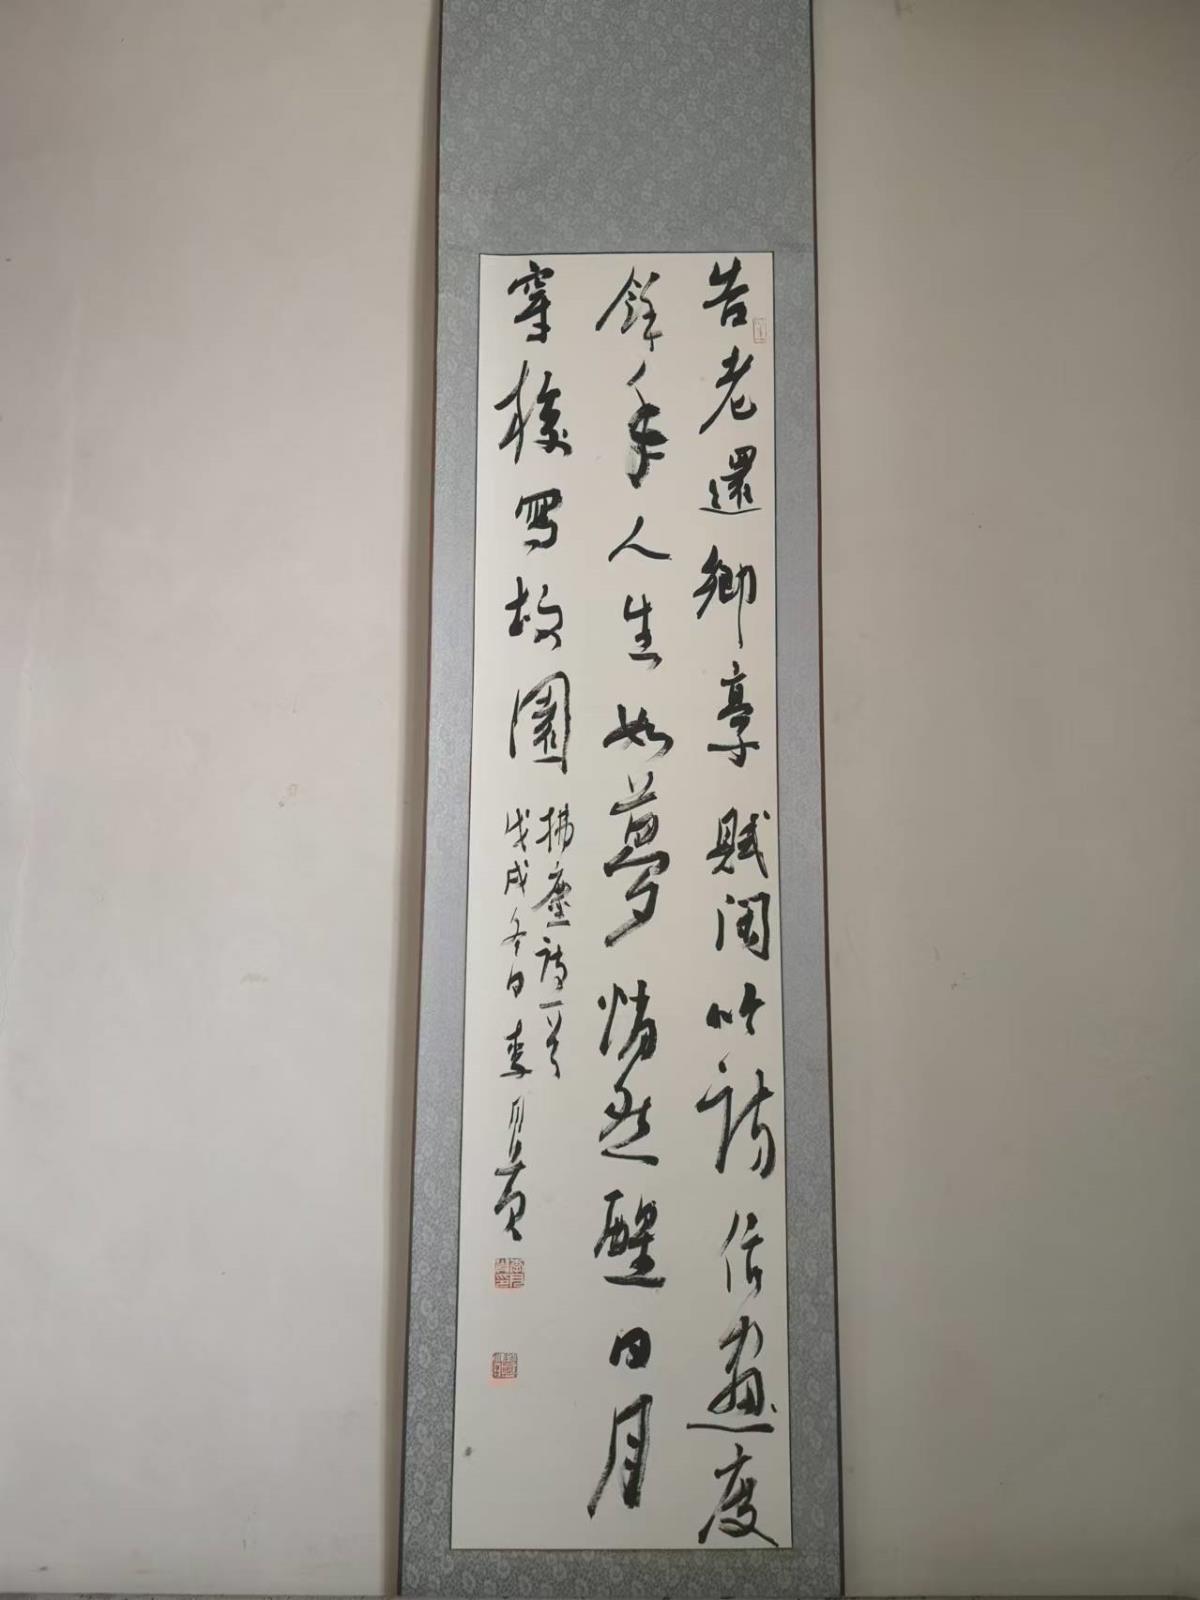 告老還鄉享賦閒吟詩作畫度
餘年人生如夢悄然醒日月
穿梭寫故園
拂塵詩一首
戊戌冬日李月